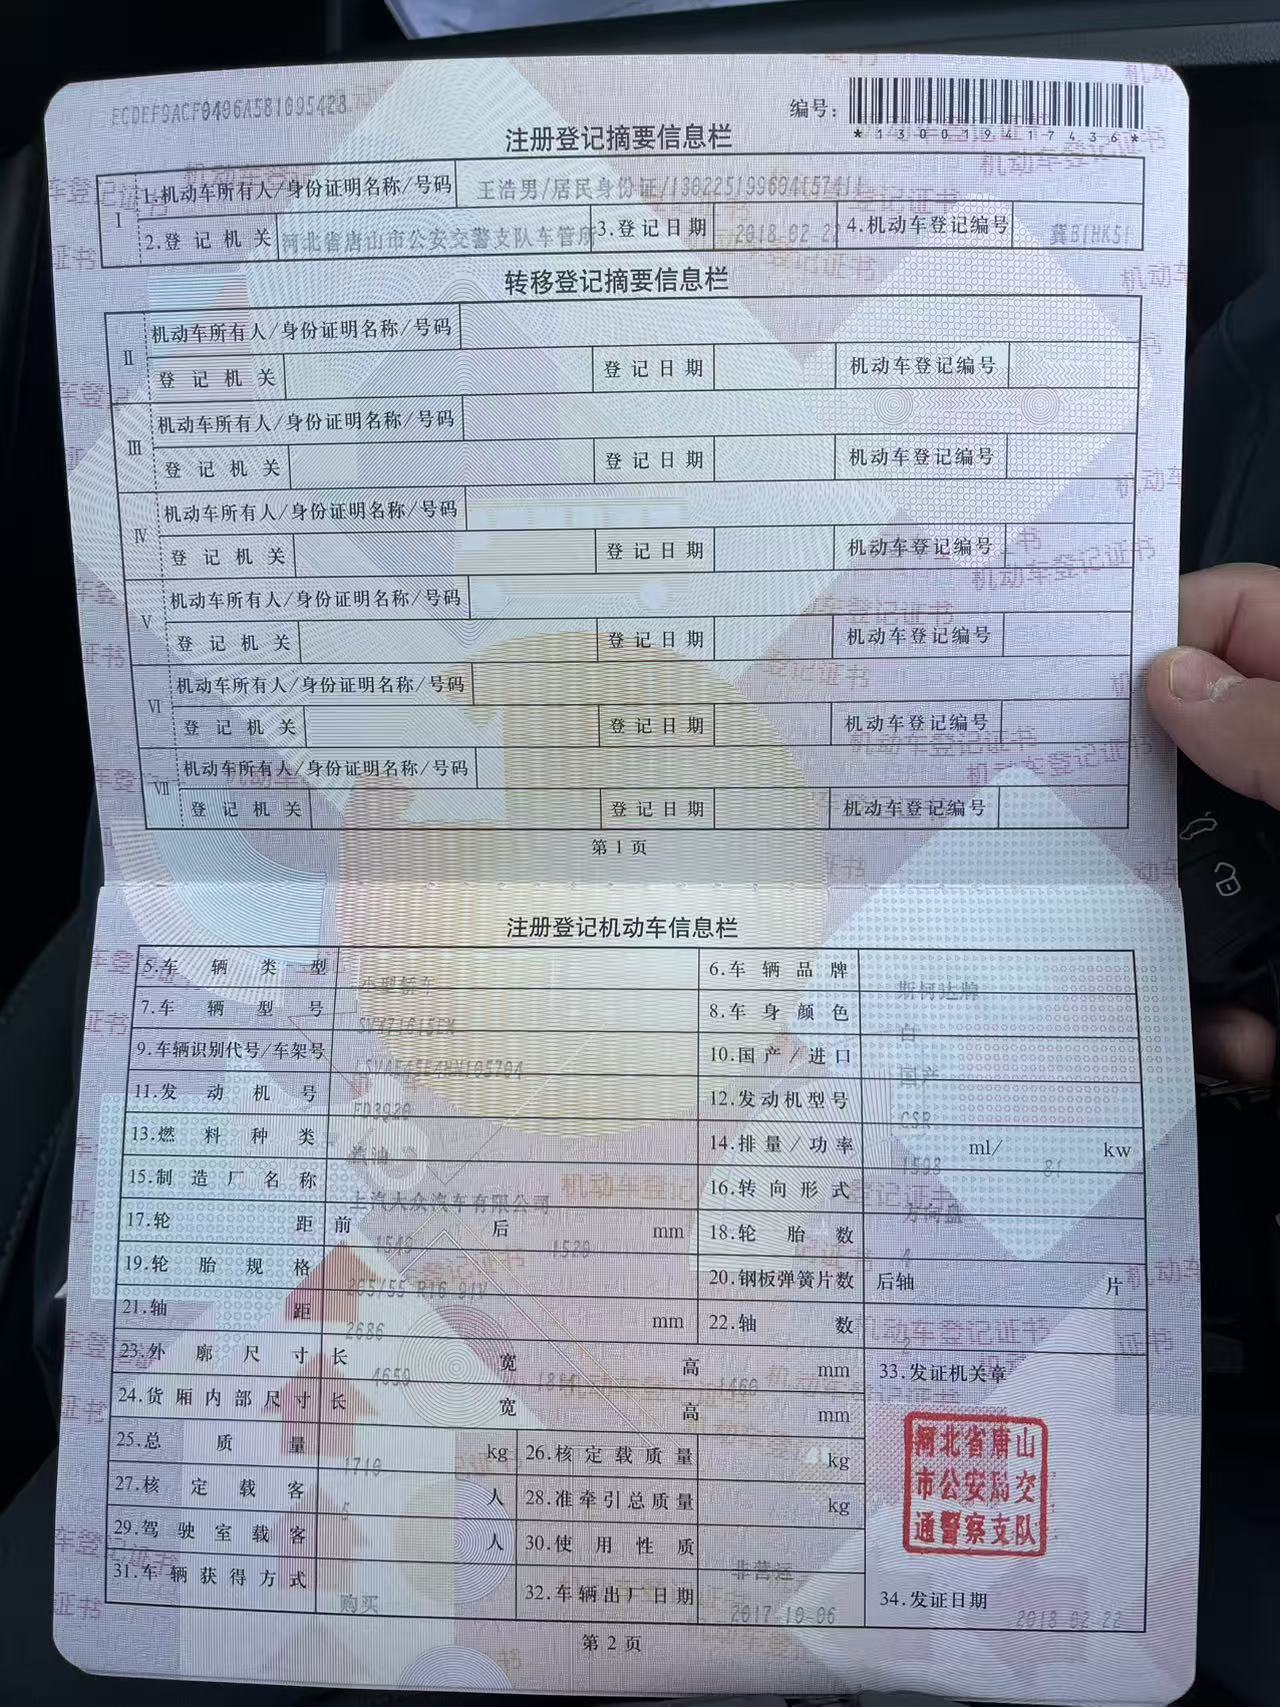 ECDEF9ACF0406A581095428
编号:
*130019417436*
注册登记摘要信息栏
I 1.机动车所有人/身份证明名称/号码 王浩男/居民身份证/
2.登记机关 河北省唐山市公安交警支队车管所 3.登记日期 2018-02-22 4.机动车登记编号 冀B1HK51
转移登记摘要信息栏
II 机动车所有人/身份证明名称/号码
登记机关 登记日期 机动车登记编号
III 机动车所有人/身份证明名称/号码
登记机关 登记日期 机动车登记编号
IV 机动车所有人/身份证明名称/号码
登记机关 登记日期 机动车登记编号
V 机动车所有人/身份证明名称/号码
登记机关 登记日期 机动车登记编号
VI 机动车所有人/身份证明名称/号码
登记机关 登记日期 机动车登记编号
VII 机动车所有人/身份证明名称/号码
登记机关 登记日期 机动车登记编号
第1页
注册登记机动车信息栏
5.车辆类型 小型轿车 6.车辆品牌 斯柯达牌
7.车辆型号 8.车身颜色 白
9.车辆识别代号/车架号 10.国产/进口 国产
11.发动机号 12.发动机型号 CSR
13.燃料种类 汽油 14.排量/功率 1598 ml/ 81 kw
15.制造厂名称 上汽大众汽车有限公司 16.转向形式 方向盘
17.轮距 前 1543 后 1520 mm 18.轮胎数 4
19.轮胎规格 205/55 R16 91V 20.钢板弹簧片数 后轴 片
21.轴距 2686 mm 22.轴数 2
23.外廓尺寸 长 4659 宽 高 1460 mm 33.发证机关章
24.货厢内部尺寸 长 宽 高 mm
25.总质量 1710 kg 26.核定载质量 kg
27.核定载客 5 人 28.准牵引总质量 kg
29.驾驶室载客 人 30.使用性质 非营运
31.车辆获得方式 购买 32.车辆出厂日期 2017-10-06 34.发证日期 2018-02-22
河北省唐山
市公安局交
通警察支队
第2页